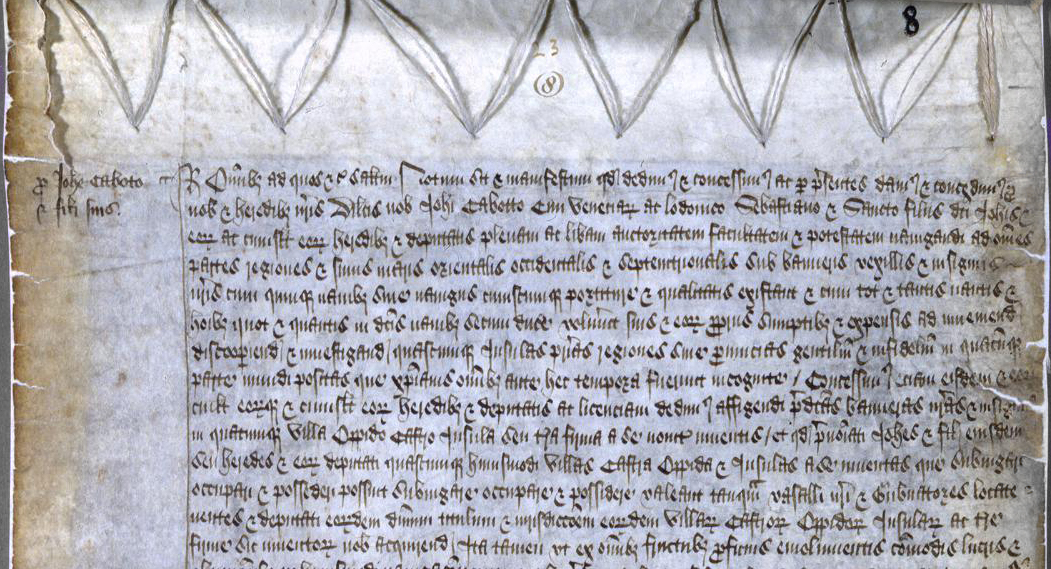 8
23
(8)
p Iohe Caboto
& fil suis.
R Omib ad quos &c saltm Notum sit & manifestum qd dedim & concessim ac p psentes dam & concedim p
nob & heredib nris Dilcis nob Iohi Cabotto Civi Veneciar ac lodovico Sebastiano & Sancto filiis dci Iohis &
eor ac cuiuslt eor heredib & deputatis plenam ac libam auctoritatem facultatem & potestatem navigandi ad omes
partes regiones & sinus maris orientalis occidentalis & septentrionalis sub banneris vexillis & insigniis
nris cum quinq navib sive navigiis cuiuscumq portiture & qualitatis existant & cum tot & tantis nautis &
hoib quot & quantis in dcis navib secum ducere voluint suis & eor ppriis sumptib & expensis ad inveniend
discooperiend & investigand quascumq Insulas prias regiones sive pvincias gentiliu & infideliu in quacumq
parte mundi positas que xpianis omib ante hec tempora fuerunt incognite / Concessim eciam eisdem & eor
cuilt eorq & cuiuslt eor heredib & deputatis ac licenciam dedim affigendi pdcas banneras nras & insignia
in quacumq villa Oppido Castro Insula seu tra firma a se noviter inventis / et qd pnoiati Iohes & filii eiusdem
seu heredes & eor deputati quascumq huiusmodi villas Castra Oppida & Insulas a se inventas que subiugari
occupari & possideri possint subiugare occupare & possidere valeant tanqm vasalli nri & Gubnatores locate
nentes & deputati eordem dnium titulum & iurisdiccoem eordem villar Castror Oppidor Insular ac tre
firme sic inventor nob acquirend / Ita tamen vt ex omib fructib pficuis emolumentis comodis lucris &